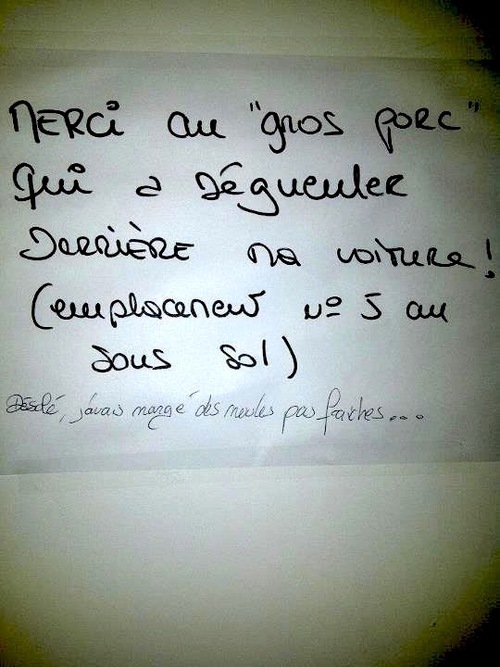 MERCi au "gros porc"
Qui a dégueuler
DERRIÈRE ma voiture!
(emplacement nº 5 au
sous sol)
Désolé, j'avais mangé des meules pas fraiches...